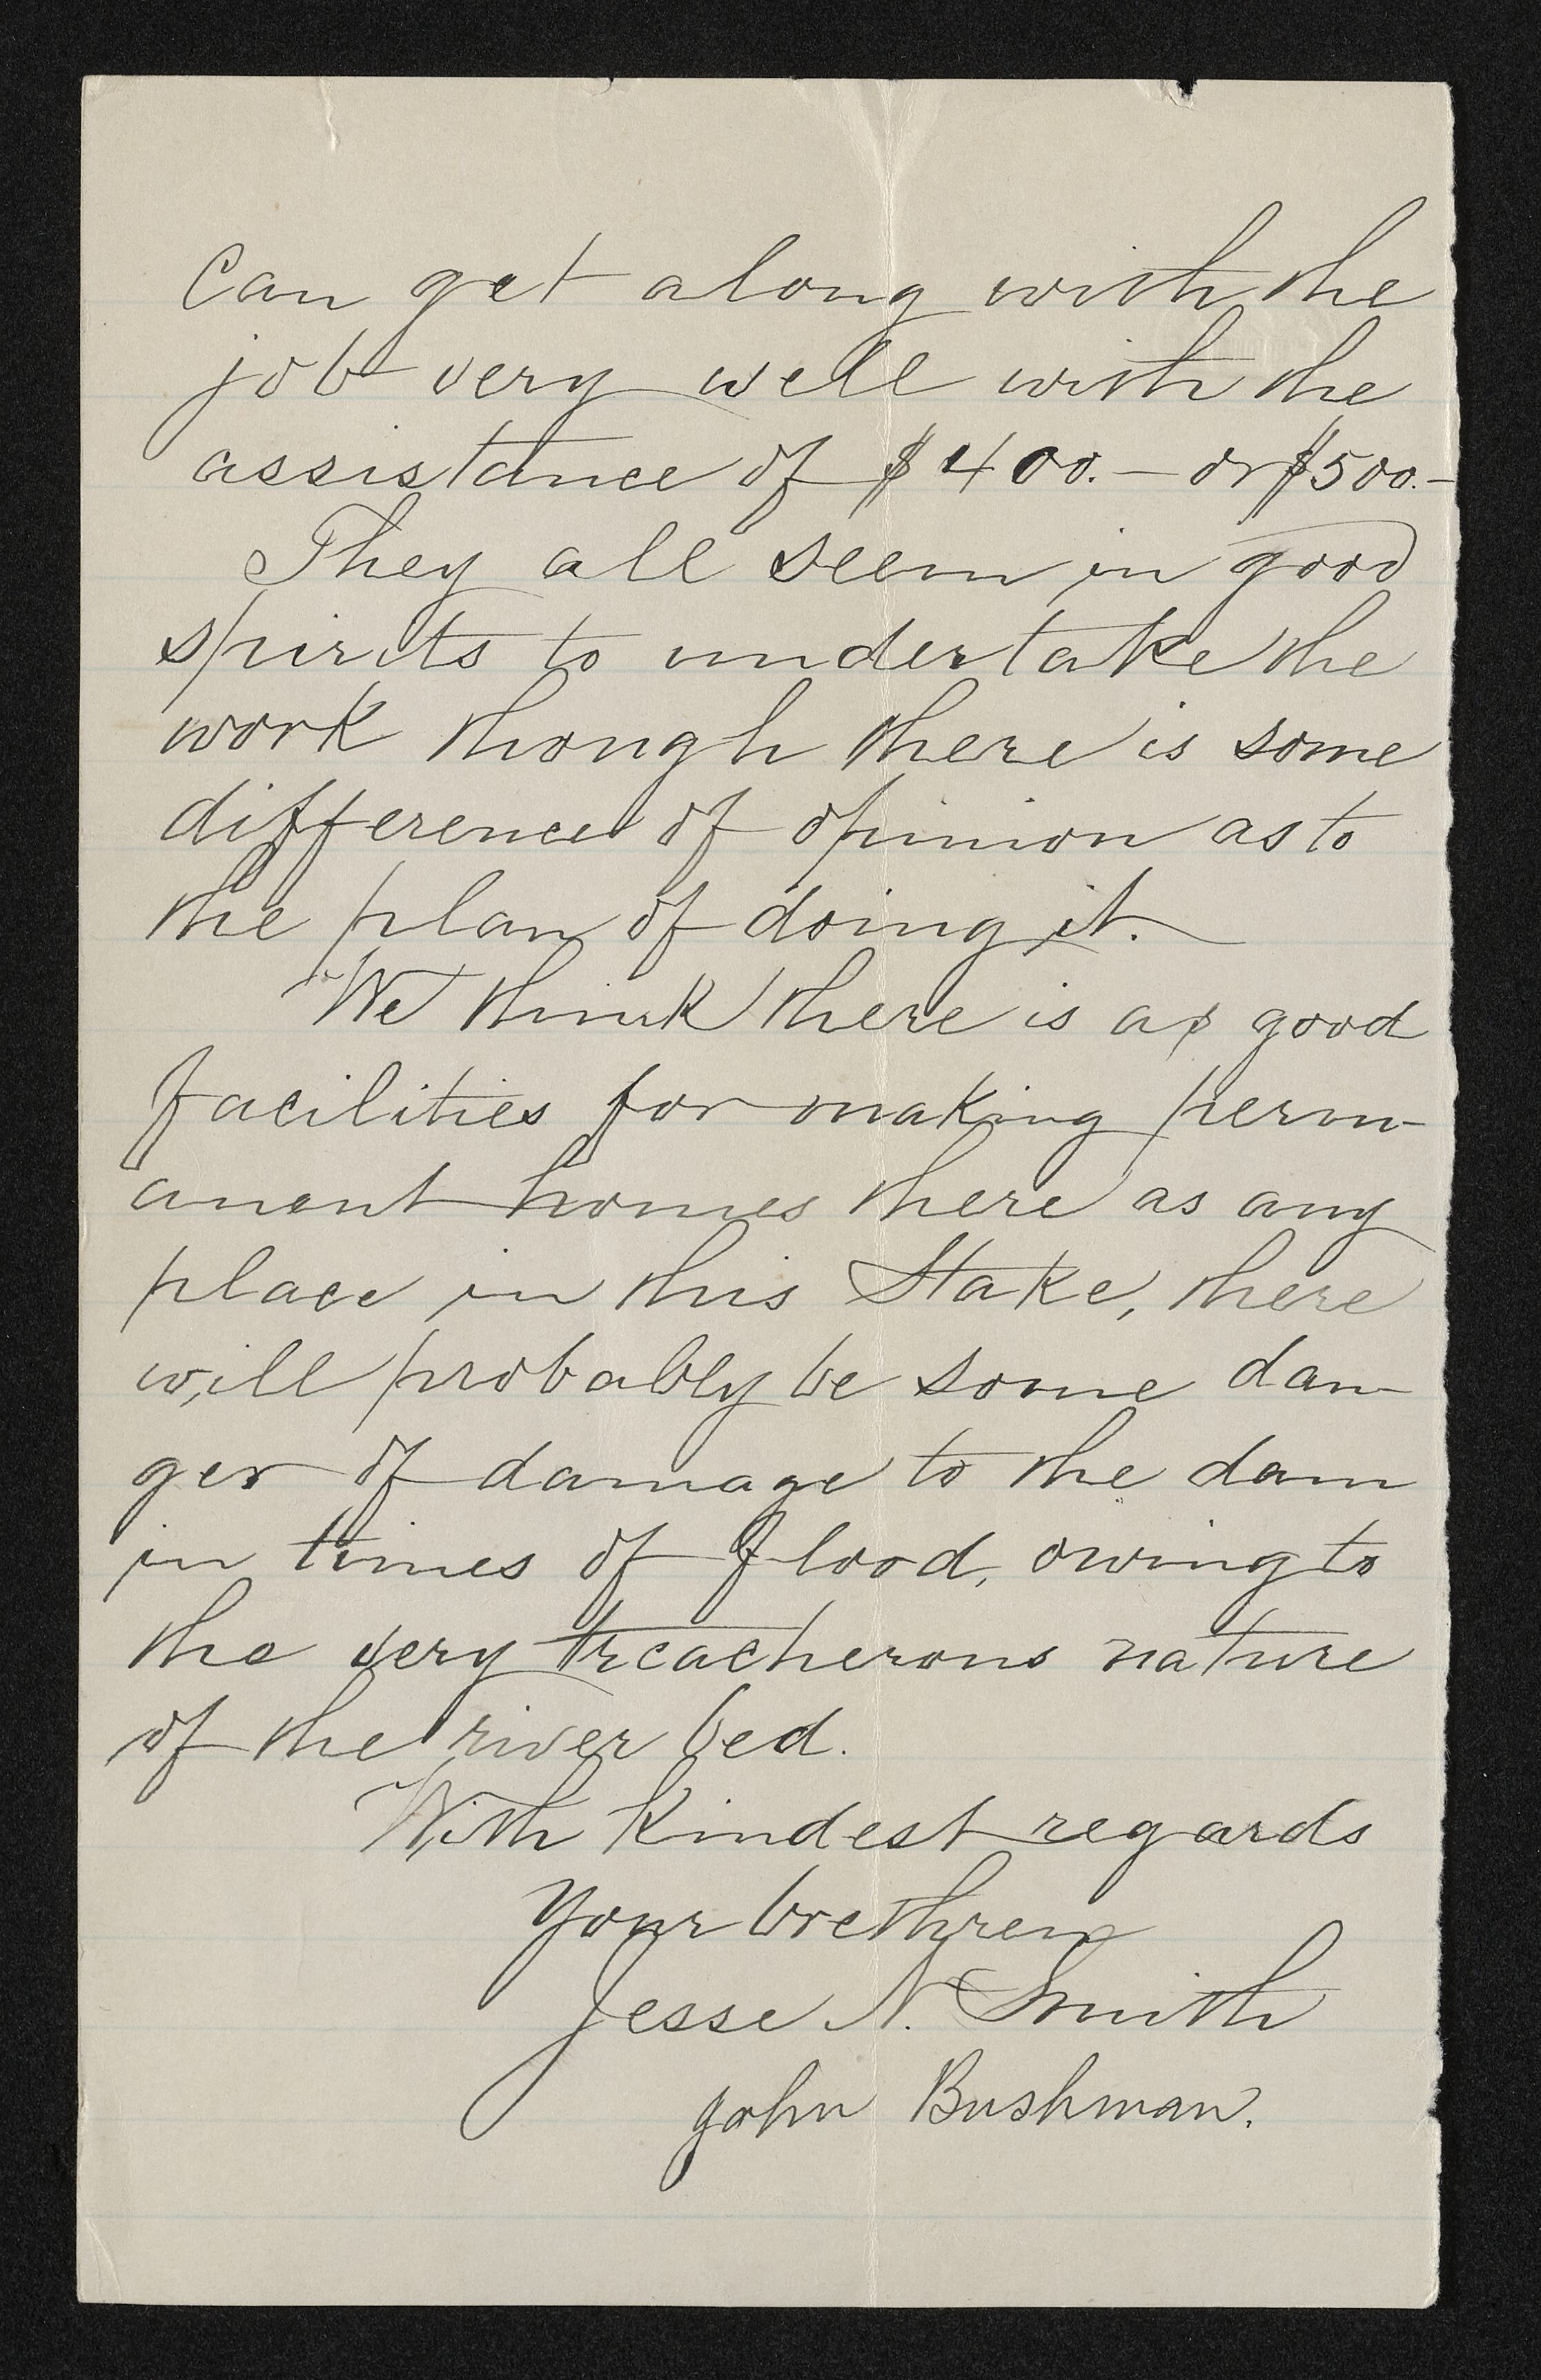 Can get along with the
job very well with the
assistance of $400.— or $500.—
They all seem in good
spirits to undertake the
work though there is some
difference of opinion as to
the plan of doing it.
We think there is as good
facilities for making perm-
anent homes there as any
place in this Stake, there
will probably be some dan-
ger of damage to the dam
in times of flood, owing to
the very treacherous nature
of the river bed.
With kindest regards
Your brethren
Jesse N. Smith
John Bushman.